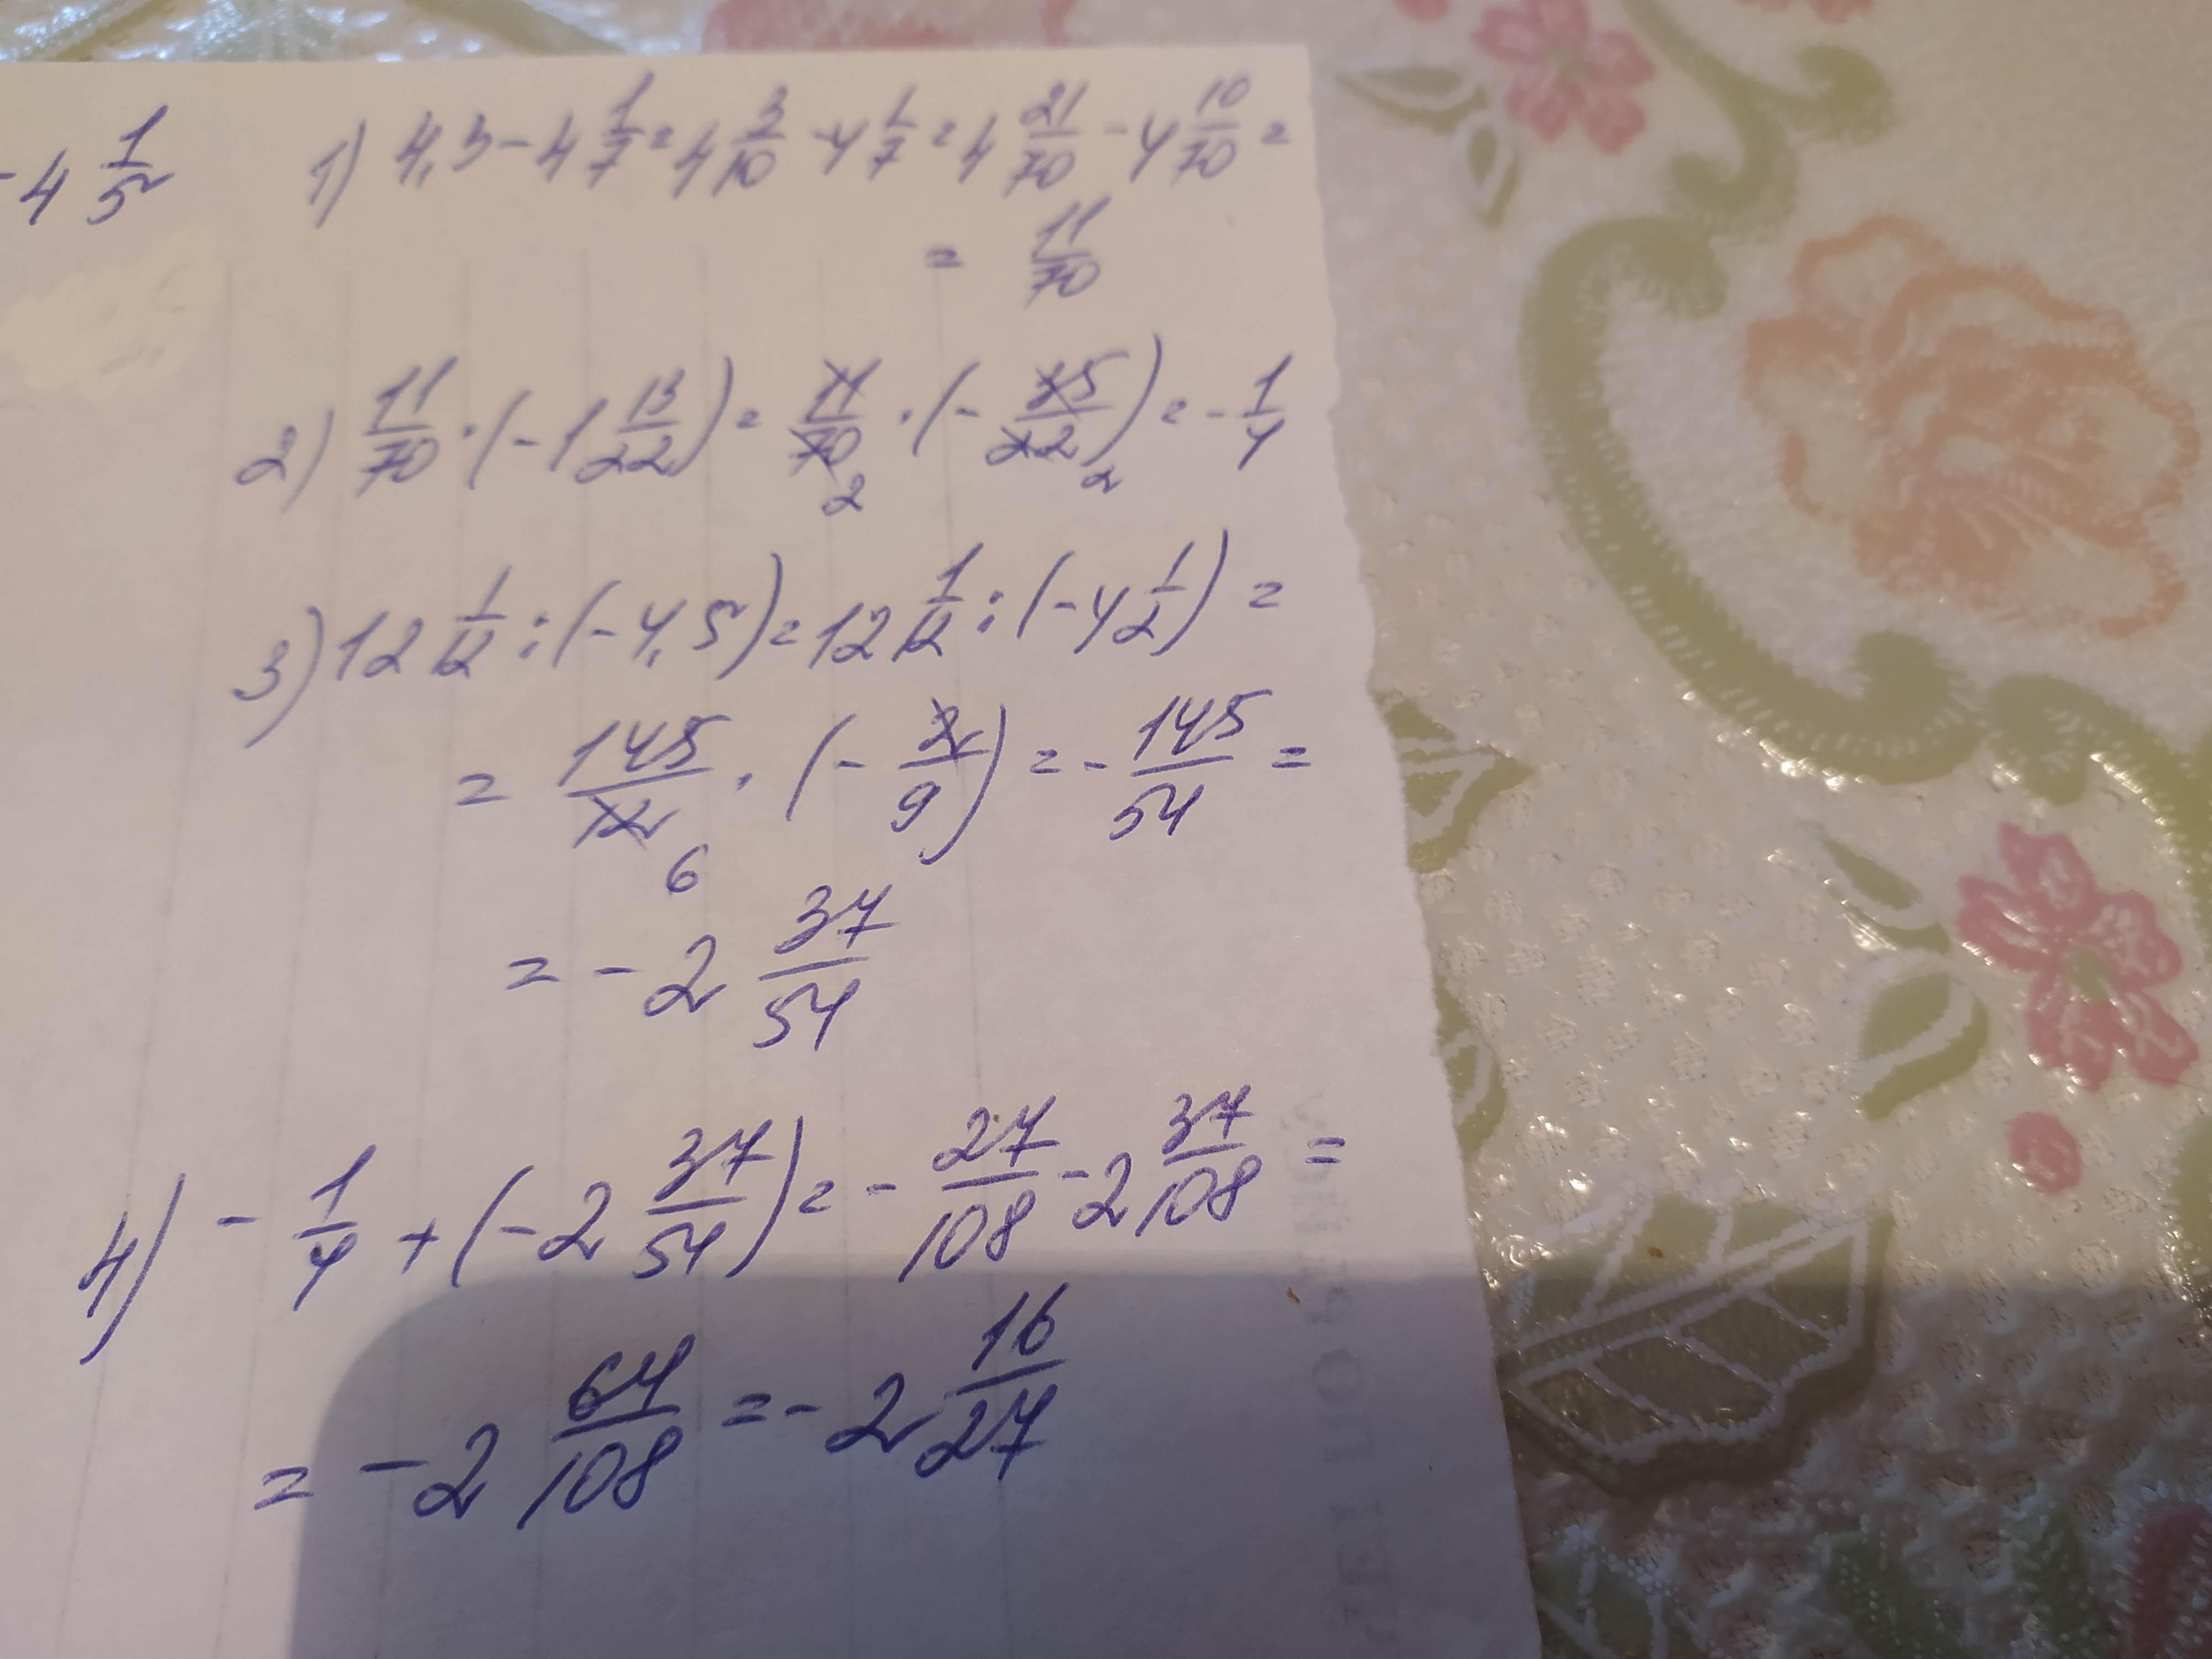 -4 1/5
1) 4,3 - 4 1/7 = 4 3/10 - 4 1/7 = 4 21/70 - 4 10/70 =
= 11/70
2) 11/70 · (-1 13/22) = 11/70 2 · (- 35/22 2) = - 1/4
3) 12 1/12 : (-4,5) = 12 1/12 : (-4 1/2) =
= 145/12 6 · (- 2/9) = - 145/54 =
= -2 37/54
4) - 1/4 + (-2 37/54) = - 27/108 - 2 37/108 =
= -2 64/108 = -2 16/27